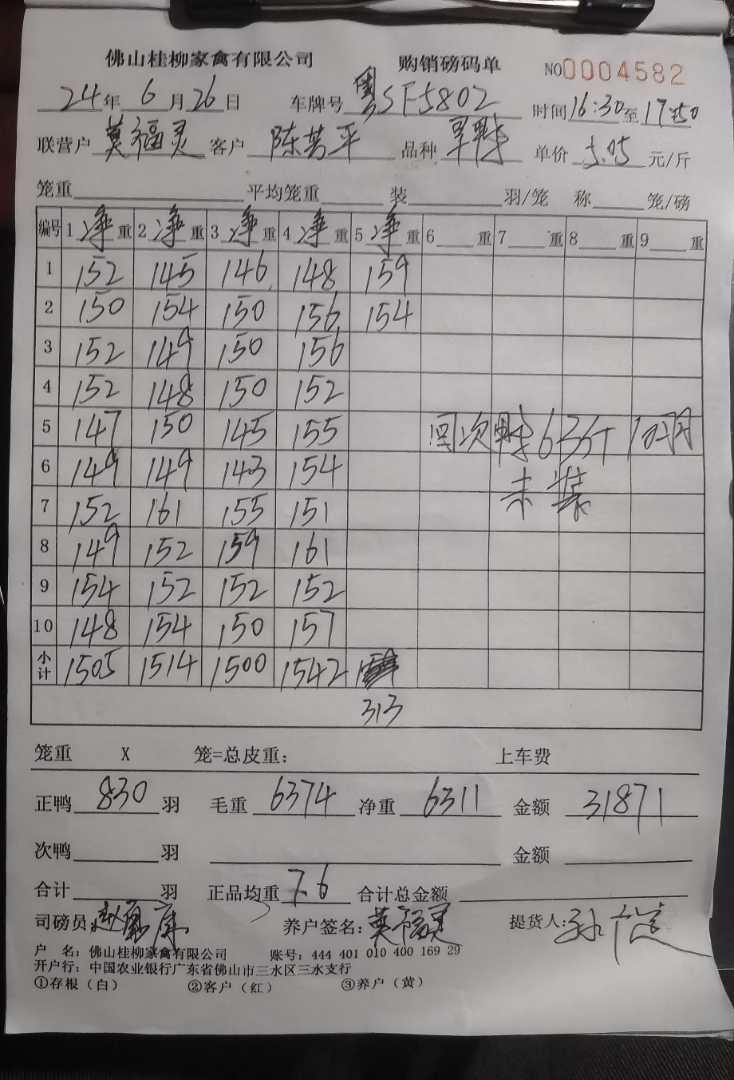 佛山桂柳家禽有限公司 购销磅码单 NO0004582
24年 6月26日 车牌号 粤SF5802 时间16:30至17:50
联营户 莫福灵 客户 陈芳平 品种 单价 5.05 元/斤
笼重 平均笼重 装 羽/笼 称 笼/磅
编号 1 净重 2 净重 3 净重 4 净重 5 净重 6 重 7 重 8 重 9 重
1 152 145 146 148 159
2 150 154 150 156 154
3 152 149 150 156
4 152 148 150 152
5 147 150 145 155 回次鸭63斤
6 149 149 143 154 未装
7 152 161 155 151
8 149 152 159 161
9 154 152 152 152
10 148 154 150 157
小计 1505 1514 1500 1542
313
笼重 X 笼=总皮重: 上车费
正鸭 830 羽 毛重 6374 净重 6311 金额 31871
次鸭 羽 金额
合计 羽 正品均重 7.6 合计总金额
司磅员: 养户签名: 莫福灵 提货人:
户 名: 佛山桂柳家禽有限公司 账号: 444 401 010 400 169 29
开户行: 中国农业银行广东省佛山市三水区三水支行
①存根（白） ②客户（红） ③养户（黄）